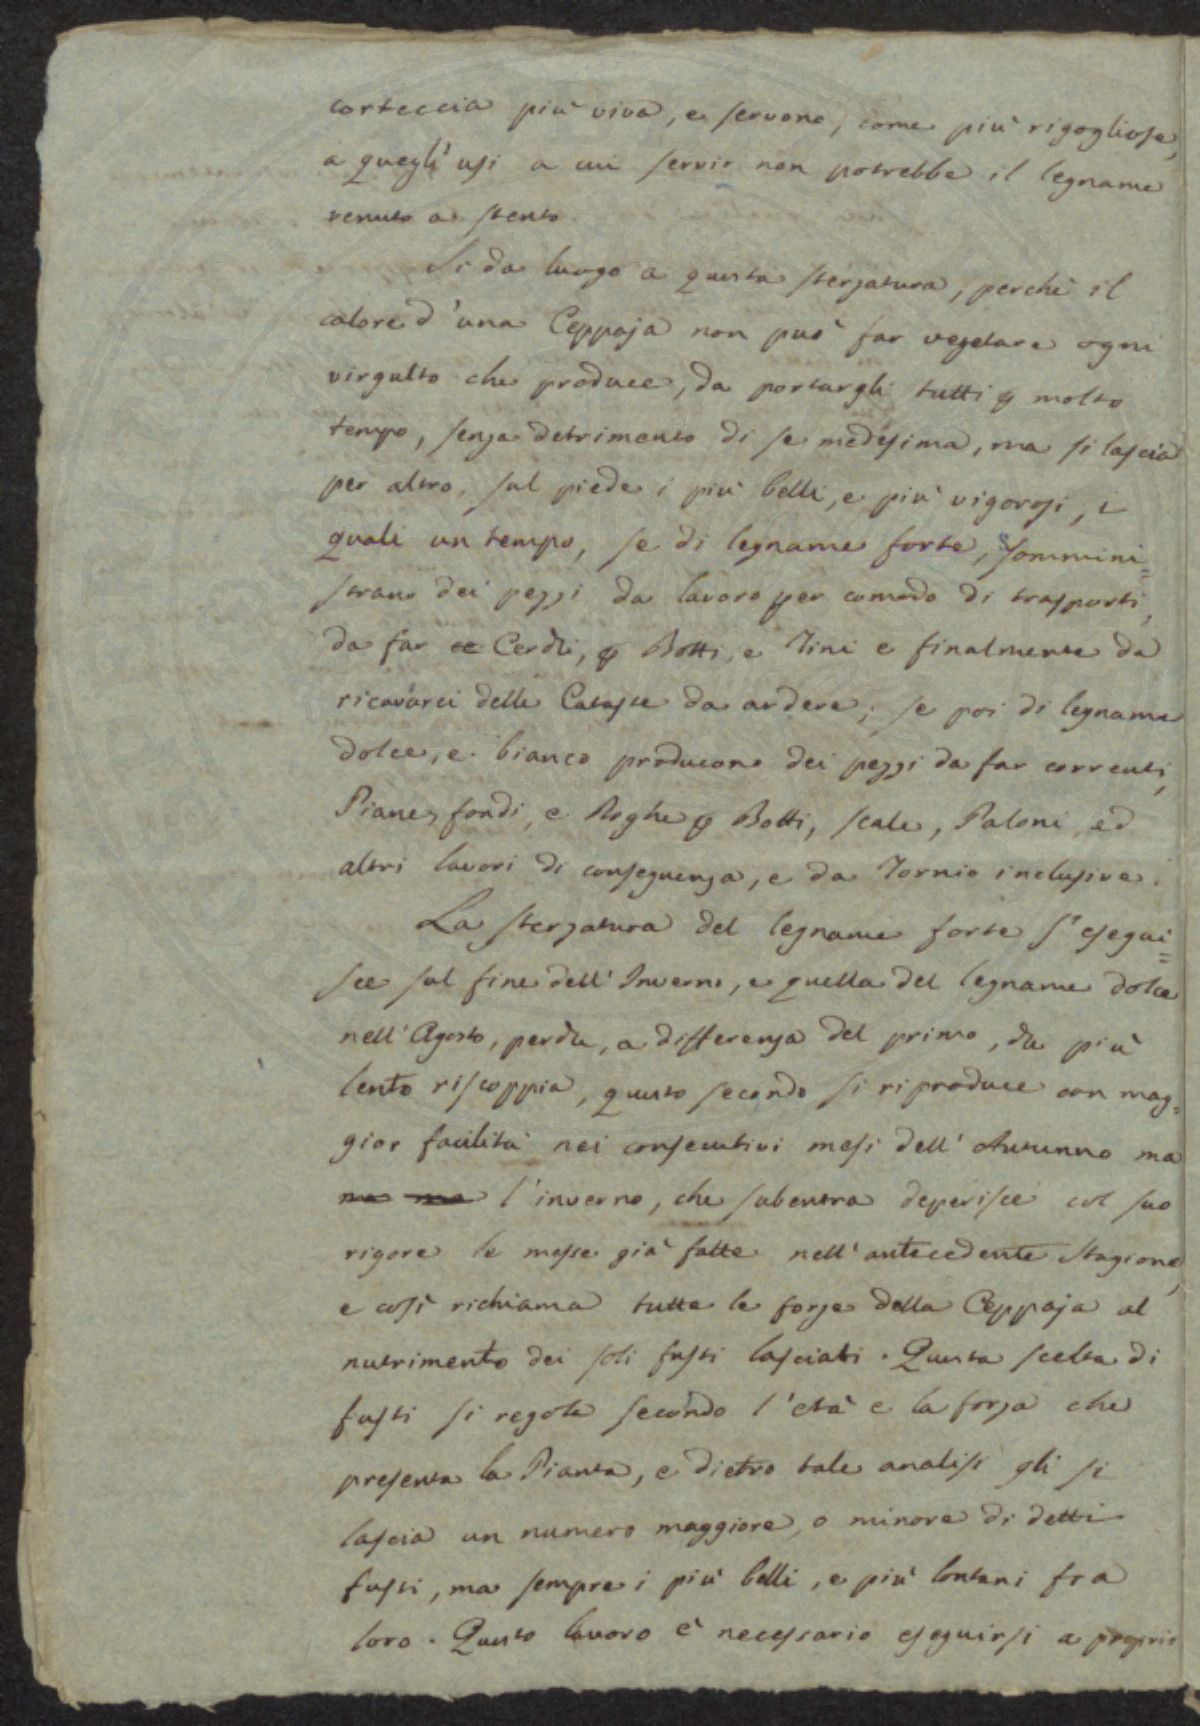 corteccia più viva, e servono, come più rigogliose,
a quegl'usi a cui servir non potrebbe il legname
venuto a stento.
Si da luogo a questa sterzatura, perchè il
calore d'una Ceppaja non può far vegetare ogni
virgulto che produce, da portargli tutti p molto
tempo, senza detrimento di se medesima, ma si lascia
per altro, sul piede i più belli, e più vigorosi, i
quali un tempo, se di legname forte, sommini=
strano dei pezzi da lavoro per comodo di trasporti,
da far Cerchi, p Botti, e Tini e finalmente da
ricavarci delle Cataste da ardere; se poi di legname
dolce, e bianco producono dei pezzi da far correnti,
Piane, fondi, e Doghe p Botti, scale, Paloni, ed
altri lavori di conseguenza, e da Tornio inclusive.
La sterzatura del legname forte s'esegui=
sce sul fine dell'Inverno, e quella del legname dolce
nell'Agosto, perchè, a differenza del primo, che più
lento riscoppia, questo secondo si riproduce con mag=
gior facilità nei consecutivi mesi dell'Autunno ma
l'inverno, che subentra deperisce col suo
rigore le messe già fatte nell'antecedente Stagione,
e così richiama tutte le forze della Ceppaja al
nutrimento dei soli fusti lasciati. Questa scelta di
fusti si regola secondo l'età e la forza che
presenta la Pianta, e dietro tale analisi gli si
lascia un numero maggiore, o minore di detti
fusti, ma sempre i più belli, e più lontani fra
loro. Questo lavoro è necessario eseguirsi a proprio